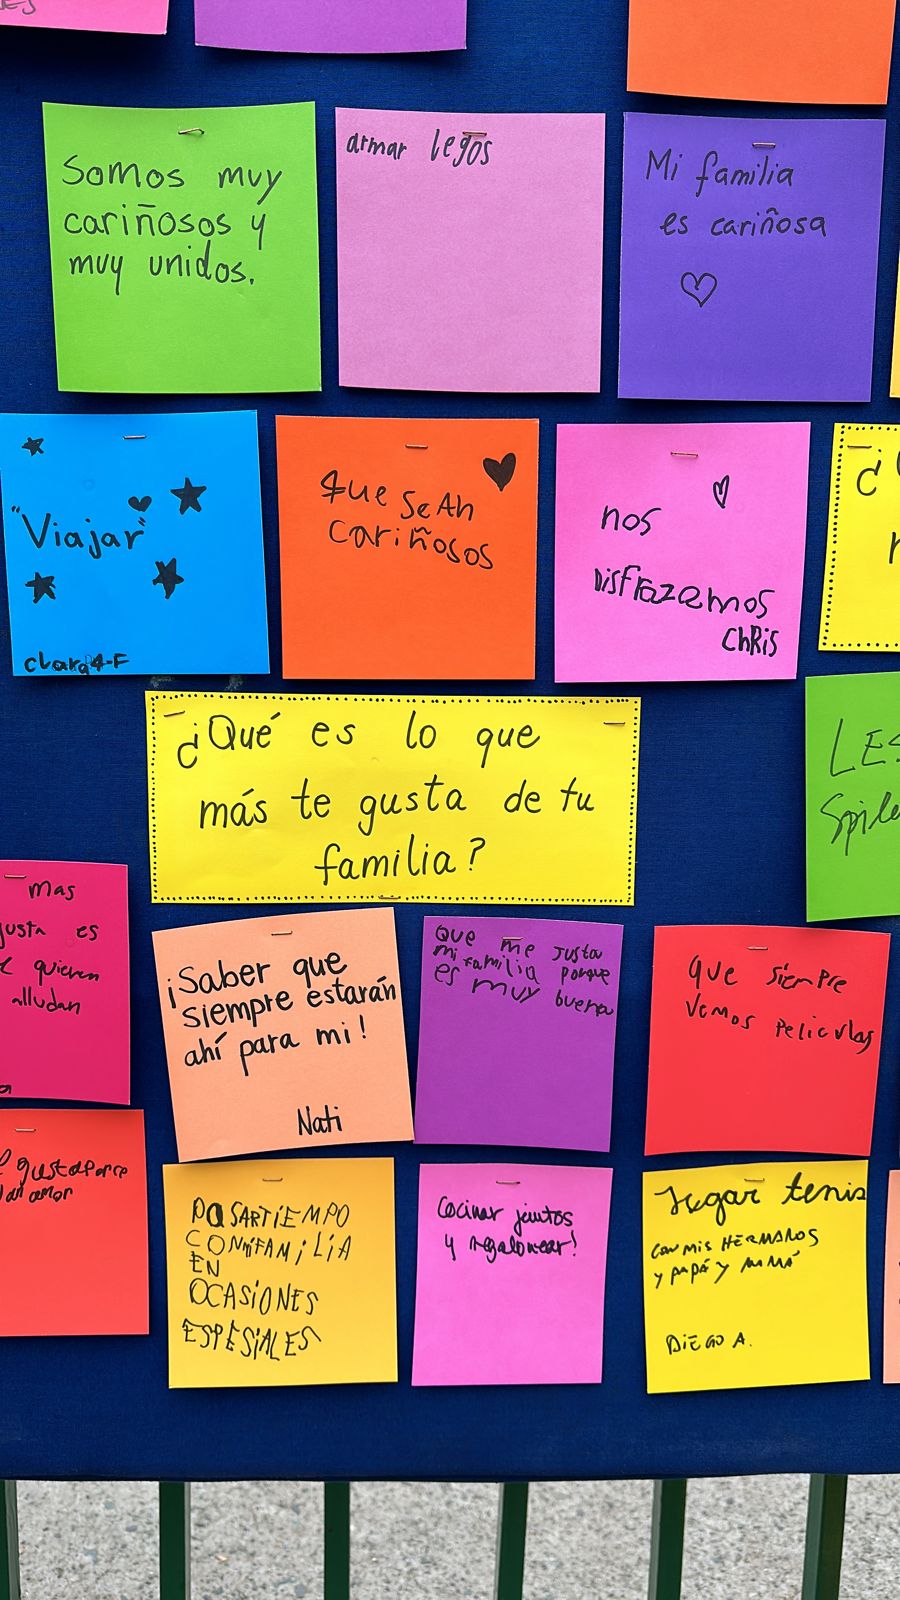 Somos muy
cariñosos y
muy unidos.
armar legos
Mi familia
es cariñosa
"Viajar"
clara 4-F
que seAn
cariñosos
nos
Disfrazamos
ChRis
¿Qué es lo que
más te gusta de tu
familia?
mas
justa es
quieren
alludan
¡Saber que
siempre estarán
ahí para mi!
Nati
Que me justa
mi familia porque
es muy buena
que siempre
vemos peliculas
gustaporce
dan amor
PASARTiEMPO
CONMiFAMiLiA
EN
OCASIONES
ESPESiALES
Cocinar juntos
y regalonear!
Jugar tenis
con mis HERMANOS
y PAPÁ y MAMÁ
DiEGO A.